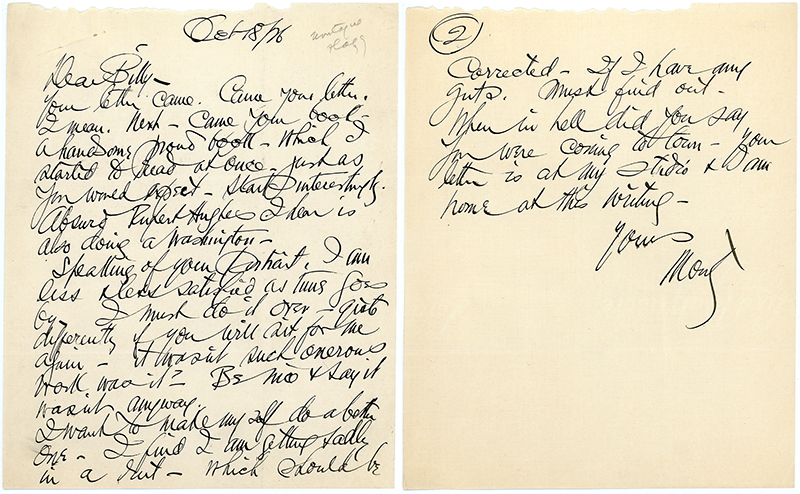 Oct 18/26
montague
glass
Dear Billy –
Your letter came. Came your letter.
I mean. Next – Came your book –
a handsome proud book – which I
started to read at once – just as
you would expect – starts interestingly.
Absurd Rupert Hughes I hear is
also doing a Washington –
Speaking of your Portrait. I am
less & less satisfied as time goes
by – I must do it over – quite
differently if you will sit for me
again – it wasn't such onerous
work was it? – Be nice & say it
wasn't anyway.
I want to make myself do a better
one – I find I am getting sadly
in a rut – which should be
2
Corrected – If I have any
guts. Must find out –
When in hell did you say
you were coming to town – your
letter is at my studio & I am
home at this writing –
Yours